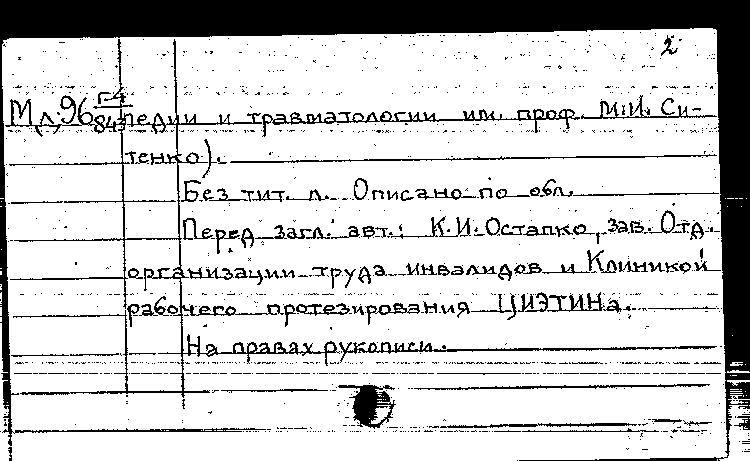 2
Мл96 г-4/843 педии и травматологии им. проф. М.И. Си-
тенко).
Без тит. л. Описано по обл.
Перед загл. авт.: К.И. Остапко, зав. Отд.
организации труда инвалидов и Клиникой
рабочего протезирования ЦИЭТИНа.
На правах рукописи.